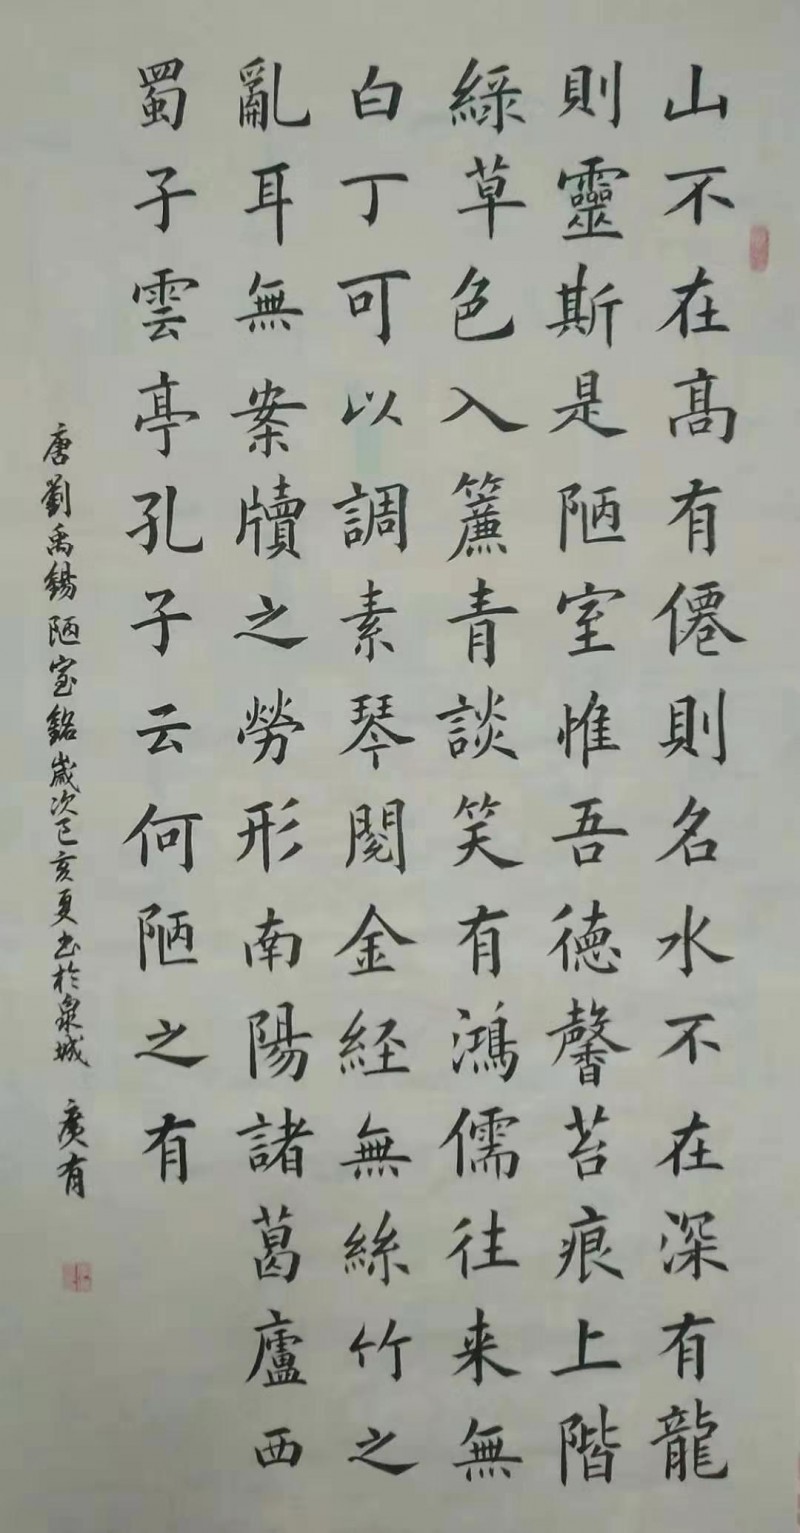 山不在高有僊則名水不在深有龍
則靈斯是陋室惟吾德馨苔痕上階
綠草色入簾青談笑有鴻儒往来無
白丁可以調素琴閱金経無絲竹之
亂耳無案牘之勞形南陽諸葛廬西
蜀子雲亭孔子云何陋之有
唐劉禹錫陋室銘歲次己亥夏书於泉城 廣有